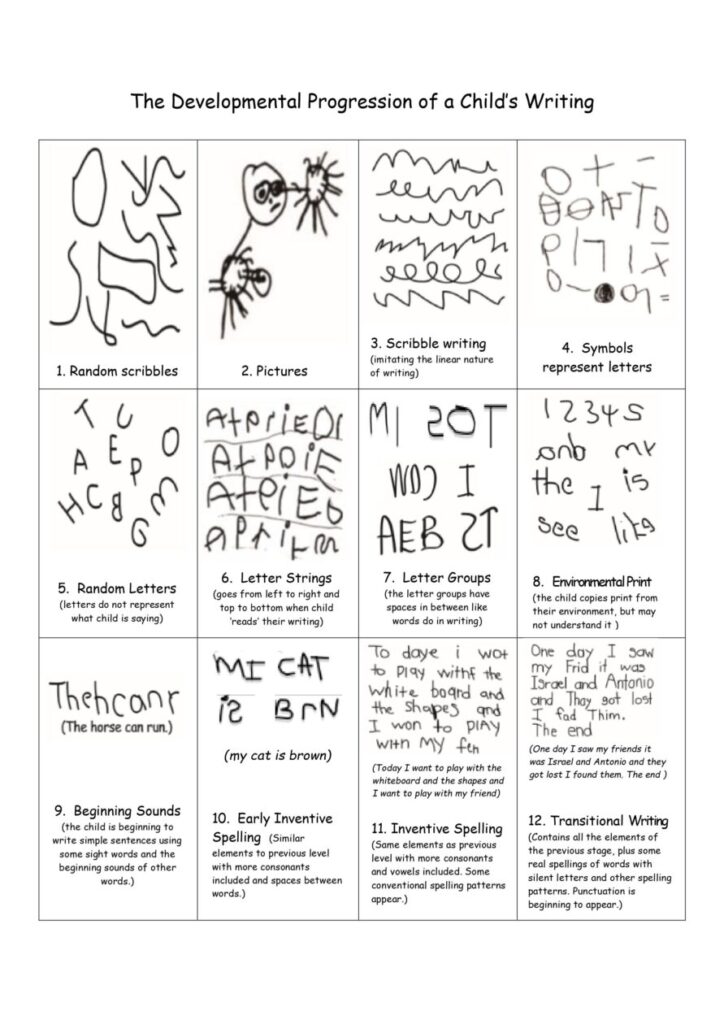 The Developmental Progression of a Child's Writing
1. Random scribbles
2. Pictures
3. Scribble writing
(imitating the linear nature
of writing)
4. Symbols
represent letters
T U
A E P O
H C B G
5. Random Letters
(letters do not represent
what child is saying)
AtpriEDr
AtpoiF
AtpiEb
6. Letter Strings
(goes from left to right and
top to bottom when child
'reads' their writing)
MI SOT
WOJ I
AEB ST
7. Letter Groups
(the letter groups have
spaces in between like
words do in writing)
1 2 3 4 5
and my
the I is
see like
8. Environmental Print
(the child copies print from
their environment, but may
not understand it )
Thehcanr
(The horse can run.)
9. Beginning Sounds
(the child is beginning to
write simple sentences using
some sight words and the
beginning sounds of other
words.)
MI CAT
is BrN
(my cat is brown)
10. Early Inventive
Spelling (Similar
elements to previous level
with more consonants
included and spaces between
words.)
To daye i wot
to PlAy withf the
white board and
the Shapes and
I won to PlAY
with MY fen
(Today I want to play with the
whiteboard and the shapes and
I want to play with my friend)
11. Inventive Spelling
(Same elements as previous
level with more consonants
and vowels included. Some
conventional spelling patterns
appear.)
One day I saw
my Frid it was
Israel and Antonio
and Thay got lost
I fad Thim.
The end
(One day I saw my friends it
was Israel and Antonio and they
got lost I found them. The end )
12. Transitional Writing
(Contains all the elements of
the previous stage, plus some
real spellings of words with
silent letters and other spelling
patterns. Punctuation is
beginning to appear.)